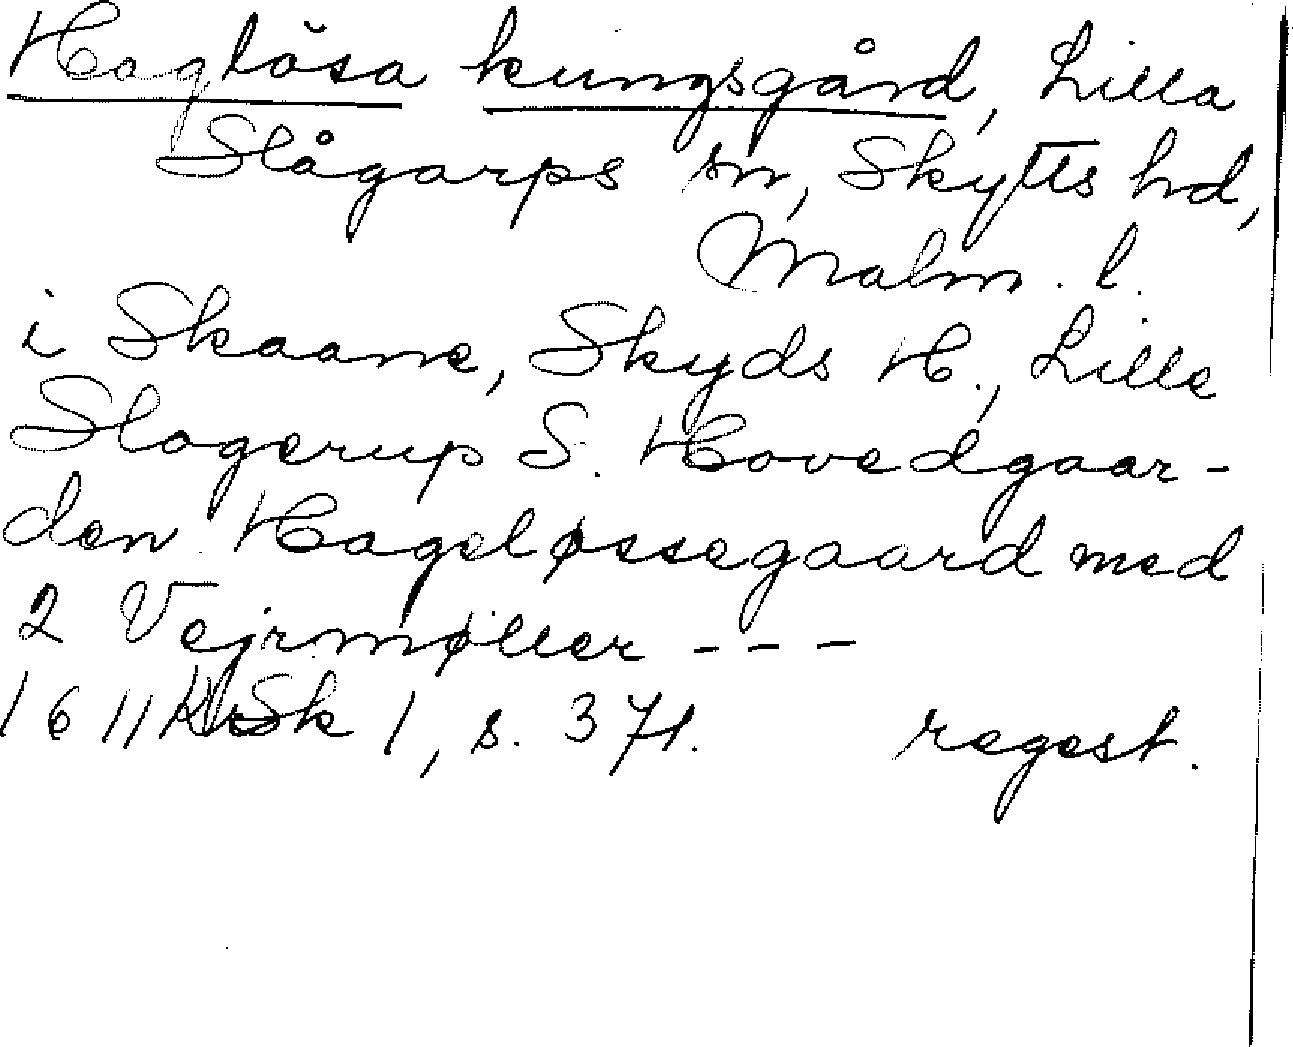 Haglösa kungsgård, Lilla
Slågarps sn, Skytts hd,
Malm. l.
i Skaane, Skyds H., Lille
Slagerup S. Hovedgaar-
den Hageløssegaard med
2 Vejrmøller ---
1611 KrSk 1, s. 371. regest.